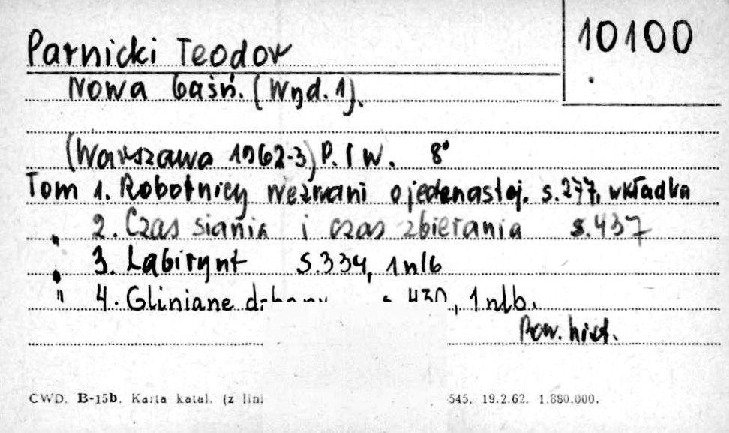 10100
Parnicki Teodor
Nowa baśń. (Wyd. 1).
(Warszawa 1962-3) P.I.W. 8°
Tom 1. Robotnicy wezwani o jedenastej. s. 277, wkładka
" 2. Czas siania i czas zbierania s. 437
" 3. Labirynt s. 334, 1 nlb
" 4. Gliniane , 1 nlb.
Pow. hist.
CWD. B-15b. Karta katal. (z lini
545. 19.2.62. 1.880.000.